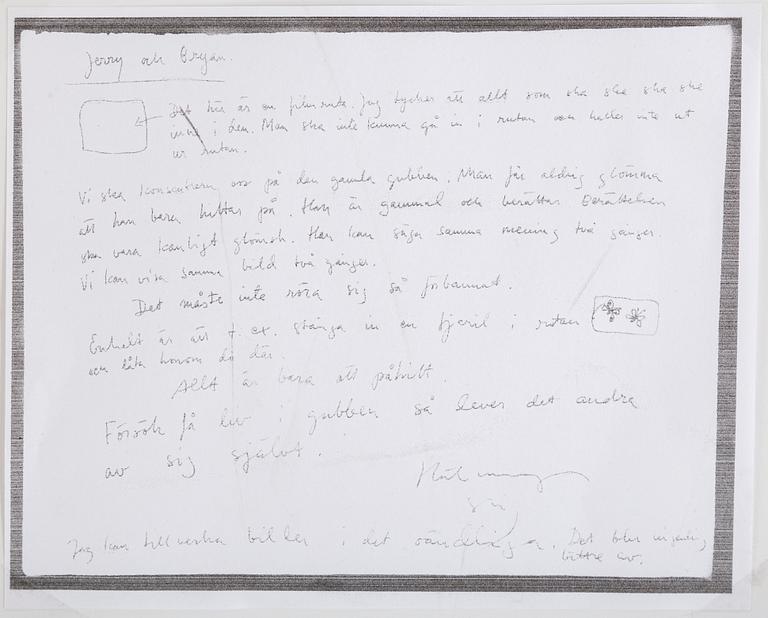 Jerry och Bryan.
Det här är en filmruta. Jag tycker att allt som ska ske ska ske
inne i den. Man ska inte kunna gå in i rutan och heller inte ut
ur rutan.
Vi ska koncentrera oss på den gamla gubben. Man får aldrig glömma
att han bara hittar på. Han är gammal och berättar. Berättelsen
ska vara konstigt glömsk. Han kan säga samma mening två gånger.
Vi kan visa samma bild två gånger.
Det måste inte röra sig så förbannat.
Enkelt är att t. ex. stänga in en fjäril i rutan
och låta honom dö där.
Allt är bara ett påhitt.
Försök få liv i gubben så lever det andra
av sig självt.
Jag kan tillverka bilder i det oändliga. Det blir ingenting
bättre av.